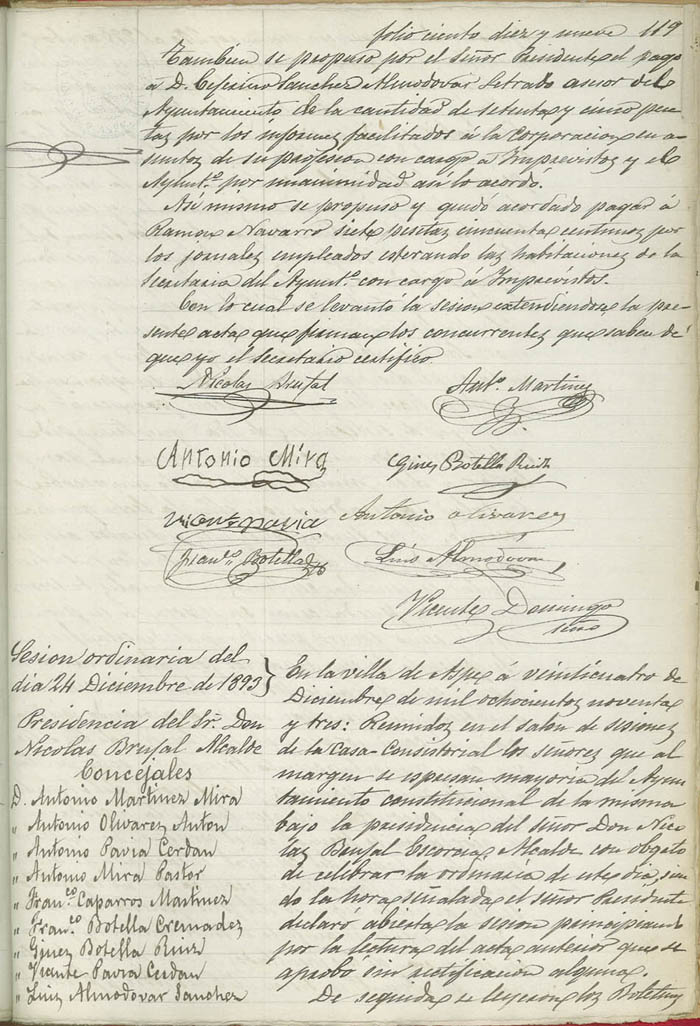 folio ciento diez y nueve 119
Tambien se propuso por el señor Presidente el pago
á D. Cesareo Sanchez Almodovar Letrado asesor del
Ayuntamiento de la cantidad de setenta y cinco pese
tas por los informes facilitados á la Corporacion en a-
suntos de su profesion con cargo á Imprevistos y el
Ayuntº por unanimidad asi lo acordó.
Asi mismo se propuso y quedó acordado pagar á
Ramon Navarro siete pesetas cincuenta centimos por
los jornales empleados esterando las habitaciones de la
Secretaria del Ayuntº con cargo á Imprevistos.
Con lo cual se levantó la sesion extendiendose la pre-
sente acta que firman los concurrentes que saben de
que yo el Secretario certifico.
Nicolas Brufal
Antº. Martinez
Antonio Mira
Gines Botella Ruiz
Vicente Pavia
Antonio Olivarez
Franco. Botella
Luis Almodovar
Vicente Domingo
srio
Sesion ordinaria del
dia 24 Diciembre de 1893
Presidencia del Sr. Don
Nicolas Brufal Alcalde
Concejales
D. Antonio Martinez Mira
" Antonio Olivarez Anton
" Antonio Pavia Cerdan
" Antonio Mira Pastor
" Franco Caparros Martinez
" Franco. Botella Cremadez
" Ginez Botella Ruiz
" Vicente Pavia Cerdan
" Luiz Almodovar Sanchez
En la villa de Aspe á veinticuatro de
Diciembre de mil ochocientos noventa
y tres: Reunidos en el salon de sesiones
de la Casa-Consistorial los señores que al
margen se espresan mayoria del Ayun-
tamiento constitucional de la misma
bajo la presidencia del señor Don Nico
las Brufal Escorcia, Alcalde con objeto
de celebrar la ordinaria de este dia, sien
do la hora señalada el señor Presidente
declaró abierta la sesion principiando
por la lectura del acta anterior que se
aprobó sin rectificacion alguna.
De seguida se leyeron los Boletines